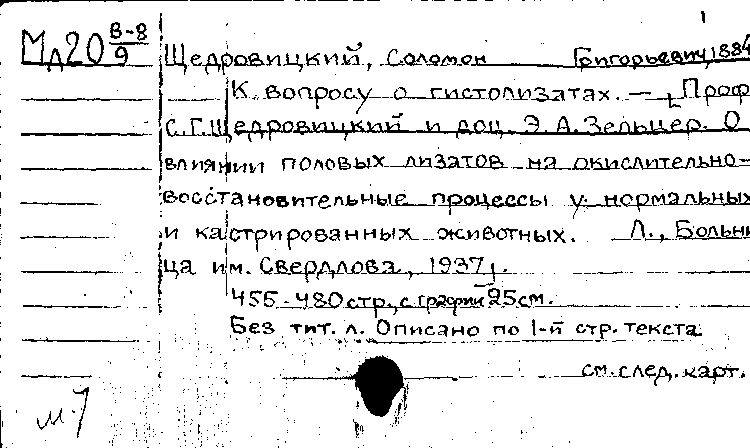 1
Мд20 В-8/9
Щедровицкий, Соломон Григорьевич, 1884
К вопросу о гистолизатах. — [Проф
С.Г.Щедровицкий и доц. Э.А.Зельцер. О
влиянии половых лизатов на окислительно-
восстановительные процессы у нормальных
и кастрированных животных. Л., Больни
ца им. Свердлова, 1937].
455-480 стр., с график 25см.
Без тит. л. Описано по 1-й стр. текста
см. след. карт.